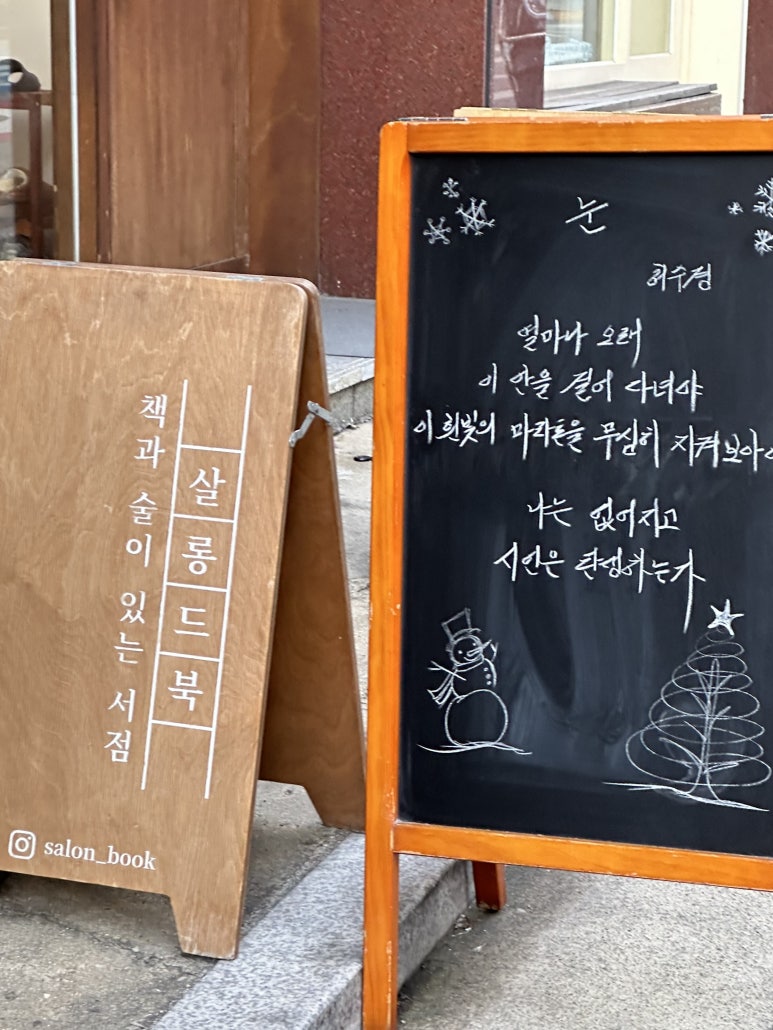 살롱드북
책과 술이 있는 서점
salon_book
눈
허수경
얼마나 오래
이 안을 걸어 다녀야
이 흰빛의 마라톤을 무심히 지켜보아야
나는 없어지고
시인은 탄생하는가